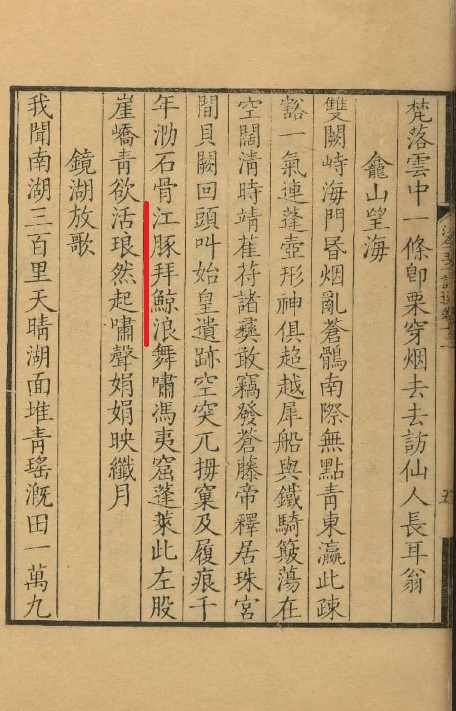 梵落雲中一條卽栗穿烟去去訪仙人長耳翁
龕山望海
雙闕峙海門昏烟亂蒼鶻南際無點青東瀛此疎
豁一氣連蓬壺形神俱超越犀船與鐵騎簸蕩在
空闊清時靖萑苻諸彝敢竊發蒼藤帝釋居珠宮
間貝闕回頭叫始皇遺跡空突兀拇窠及履痕千
年泐石骨江豚拜鯨浪舞嘯馮夷窟蓬萊此左股
崖嶠青欲活琅然起嘯聲娟娟映纖月
鏡湖放歌
我聞南湖三百里天晴湖面堆青瑤溉田一萬九